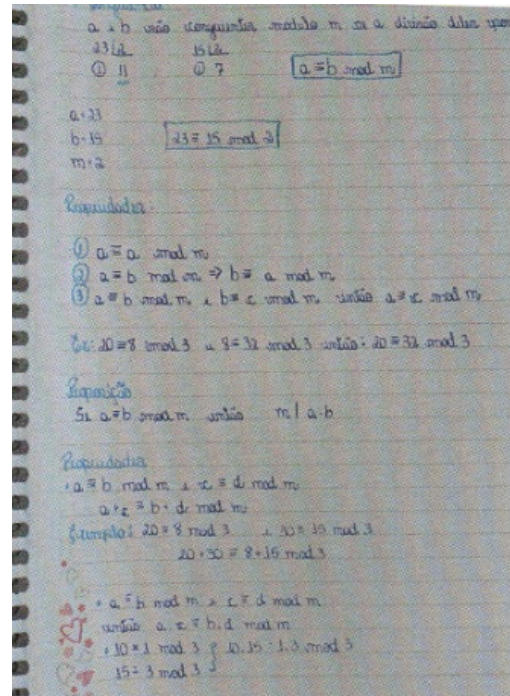 a e b são congruentes módulo m se a divisão deles
23 2 15 2
① 11 ① 7 a ≡ b mod m
a=23
b=15 23 ≡ 15 mod 2
m=2
Propriedades:
① a ≡ a mod m
② a ≡ b mod m ⇒ b ≡ a mod m
③ a ≡ b mod m e b ≡ c mod m então a ≡ c mod m
Ex: 20 ≡ 8 mod 3 e 8 ≡ 32 mod 3 então: 20 ≡ 32 mod 3
Proposição
Se a ≡ b mod m então m | a-b
Propriedades
• a ≡ b mod m e c ≡ d mod m
a+c ≡ b+d mod m
Exemplo: 20 ≡ 8 mod 3 e 30 ≡ 15 mod 3
20+30 ≡ 8+15 mod 3
• a ≡ b mod m e c ≡ d mod m
então a.c ≡ b.d mod m
• 10 ≡ 1 mod 3 10.15 ≡ 1.3 mod 3
15 ≡ 3 mod 3